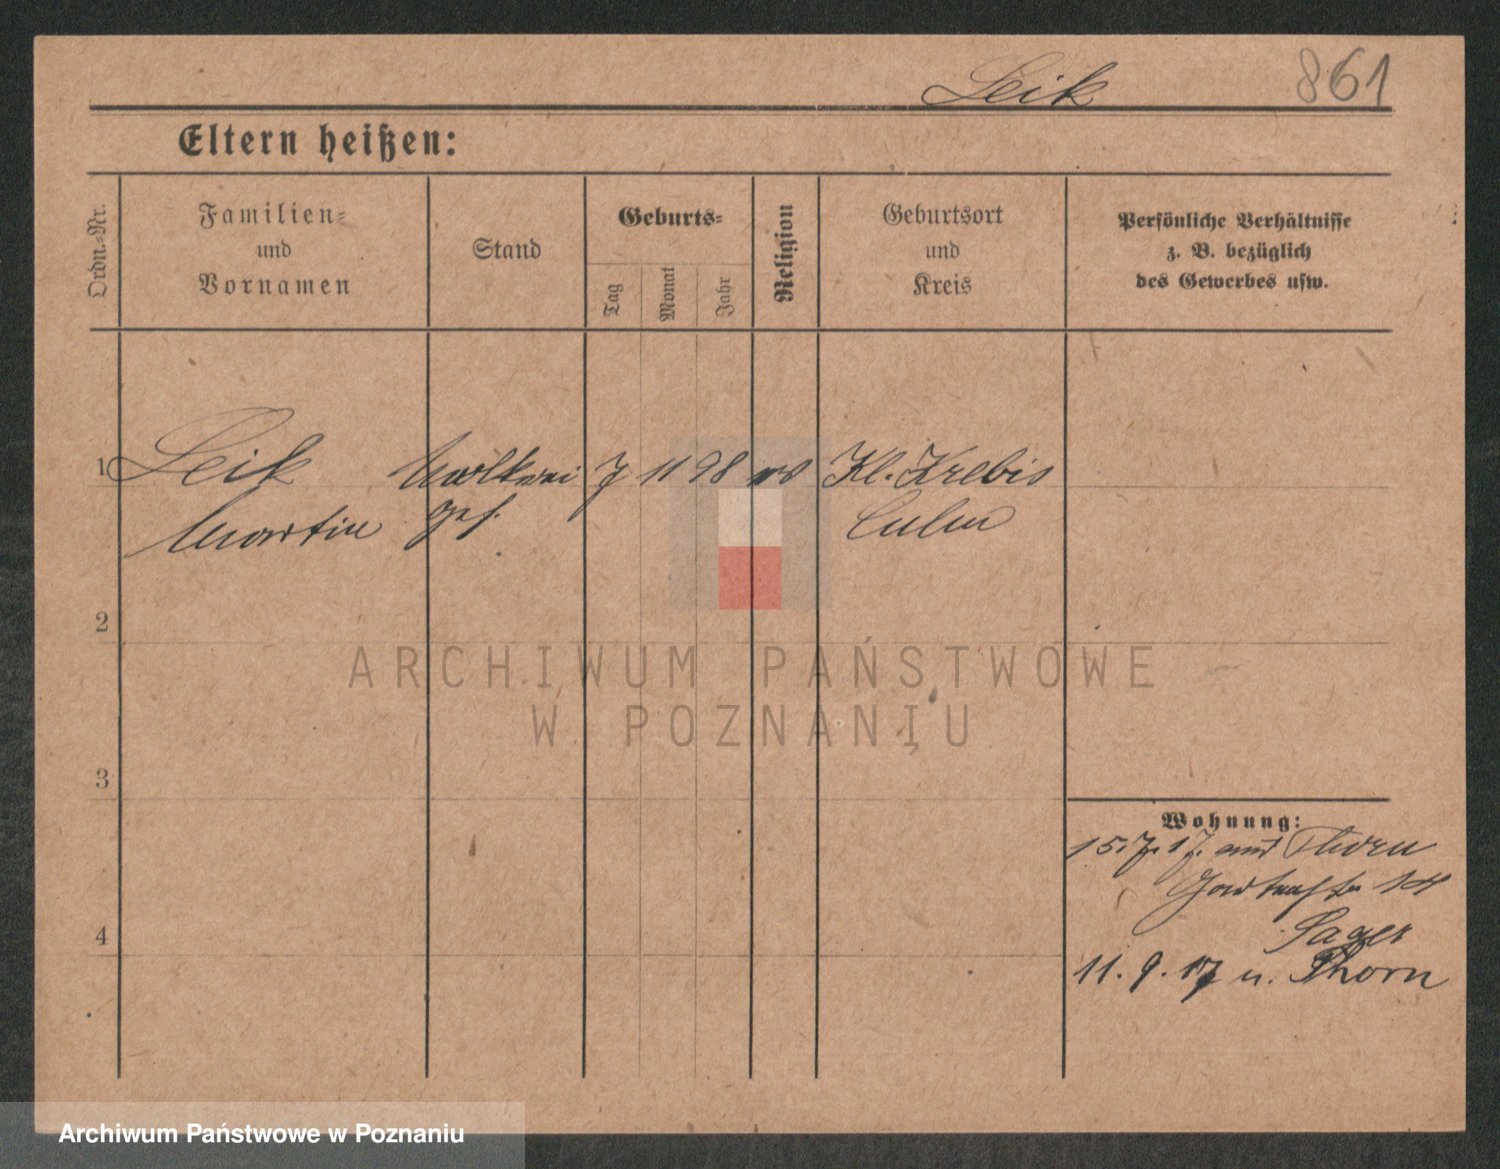 Leik 861
Eltern heißen:
Ordn.-Nr.
Familien-
und
Vornamen
Stand
Geburts-
Tag
Monat
Jahr
Religion
Geburtsort
und
Kreis
Persönliche Verhältnisse
z. B. bezüglich
des Gewerbes usw.
1 Leik Molkerei 7 11 98 Kl. Krebis
Martin Geh. Culm
2
3
4
Wohnung:
15.7.17. aus Thorn
14
Sager
11.9.17 n. Thorn
ARCHIWUM PAŃSTWOWE
W POZNANIU
Archiwum Państwowe w Poznaniu